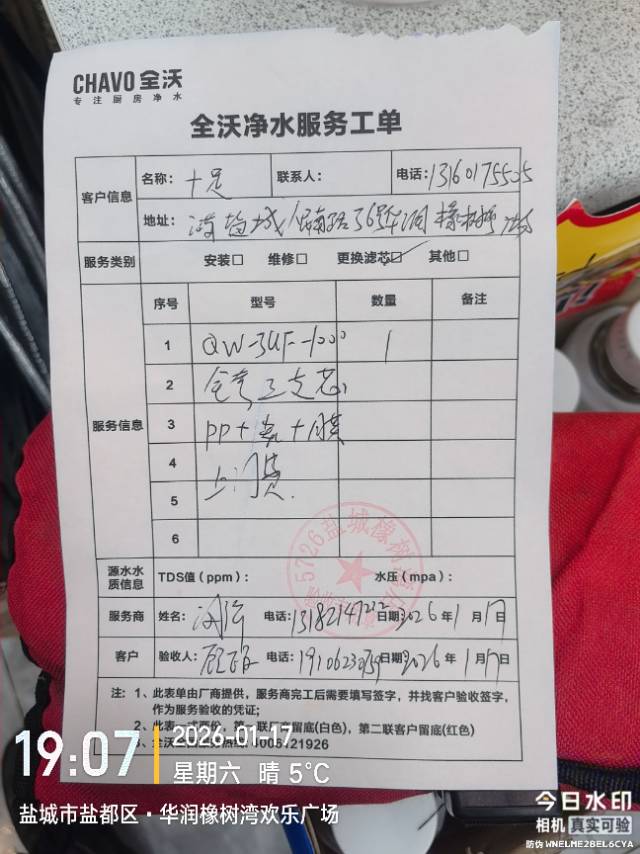 CHAVO 全沃
专注厨房净水
全沃净水服务工单
客户信息
名称：十足
联系人：
电话：13160175505
地址：
服务类别
安装□ 维修□ 更换滤芯☑ 其他□
服务信息
序号 型号 数量 备注
1 QW-3UF-1000 1
2 全套三支芯
3 PP+炭+膜
4 上门费.
5
6
源水水质信息
TDS值（ppm）： 水压（mpa）：
服务商 姓名： 电话： 日期：2026年1月17日
客户 验收人： 电话： 日期：2026年1月17日
注：1、此表单由厂商提供，服务商完工后需要填写签字，并找客户验收签字，
作为服务验收的凭证；
第二联客户留底(红色)
19:07
2026-01-17
星期六 晴 5°C
盐城市盐都区·华润橡树湾欢乐广场
今日水印
相机 真实可验
防伪 WNELME2BEL6CYA